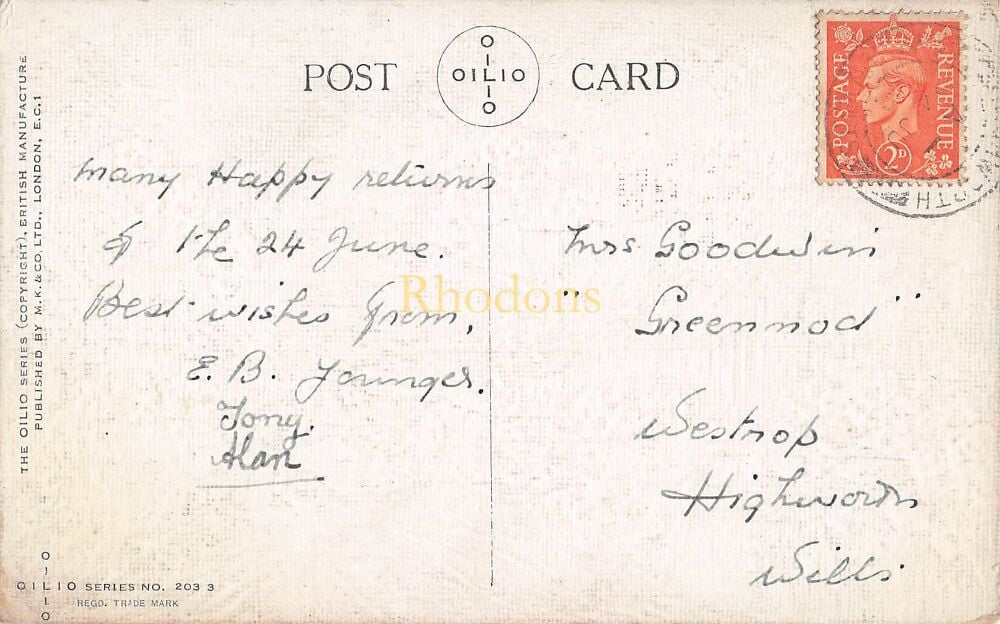 POST CARD
O
I
OILIO
I
O
POSTAGE REVENUE
2D
THE OILIO SERIES (COPYRIGHT). BRITISH MANUFACTURE
PUBLISHED BY M.K. & CO. LTD., LONDON, E.C.1
Many Happy returns
of the 24 June.
Best wishes from,
E. B. Younger.
Tony.
Alan
Mrs Goodwin
"Greenmod"
Westrop
Highworth
Wilts.
Rhodons
O
I
OILIO SERIES NO. 203 3
I
O
REGD. TRADE MARK